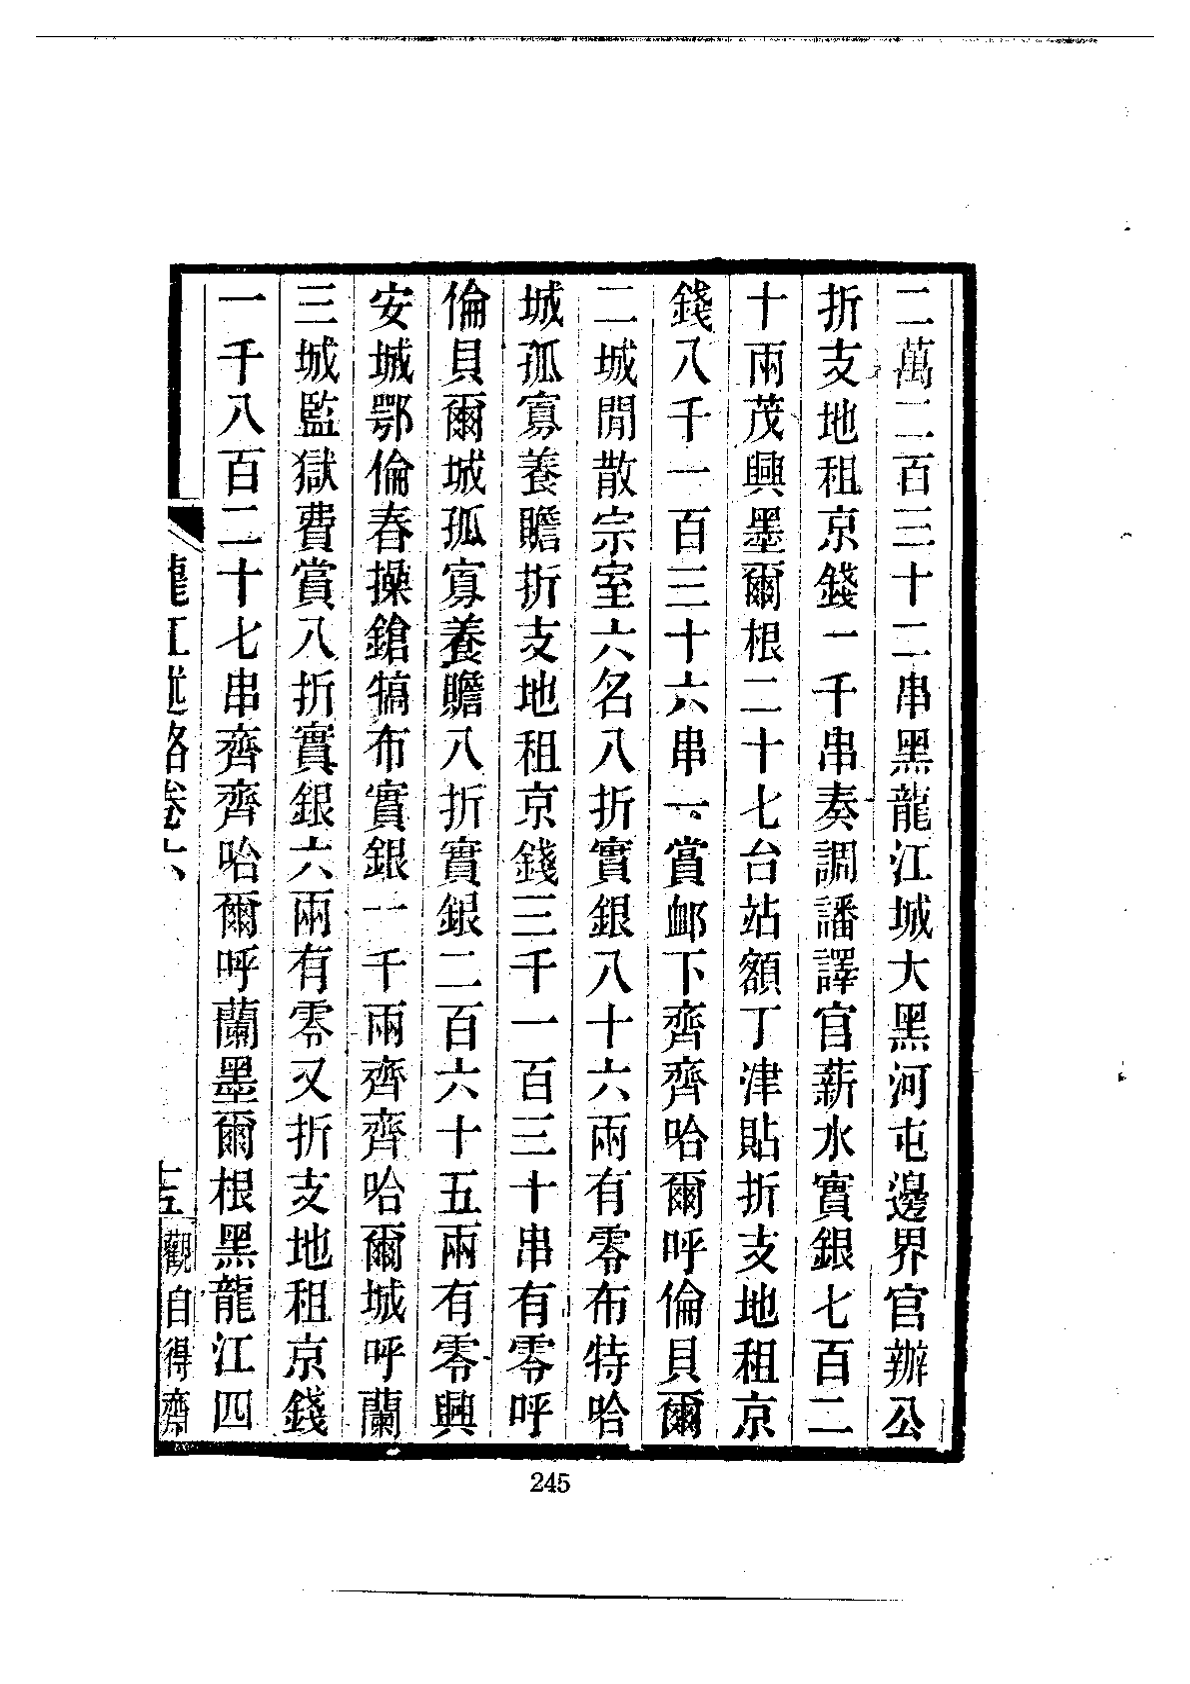 二萬二百三十二串黑龍江城大黑河屯邊界官辦公
折支地租京錢一千串奏調譒譯官薪水實銀七百二
十兩茂興墨爾根二十七台站額丁津貼折支地租京
錢八千一百三十六串一賞衈下齊齊哈爾呼倫貝爾
二城閒散宗室六名八折實銀八十六兩有零布特哈
城孤寡養贍折支地租京錢三千一百三十串有零呼
倫貝爾城孤寡養贍八折實銀二百六十五兩有零興
安城鄂倫春操鎗犒布實銀一千兩齊齊哈爾城呼蘭
三城監獄費賞八折實銀六兩有零又折支地租京錢
一千八百二十七串齊齊哈爾呼蘭墨爾根黑龍江四
龍江述略卷六
十五
觀自得齋
245